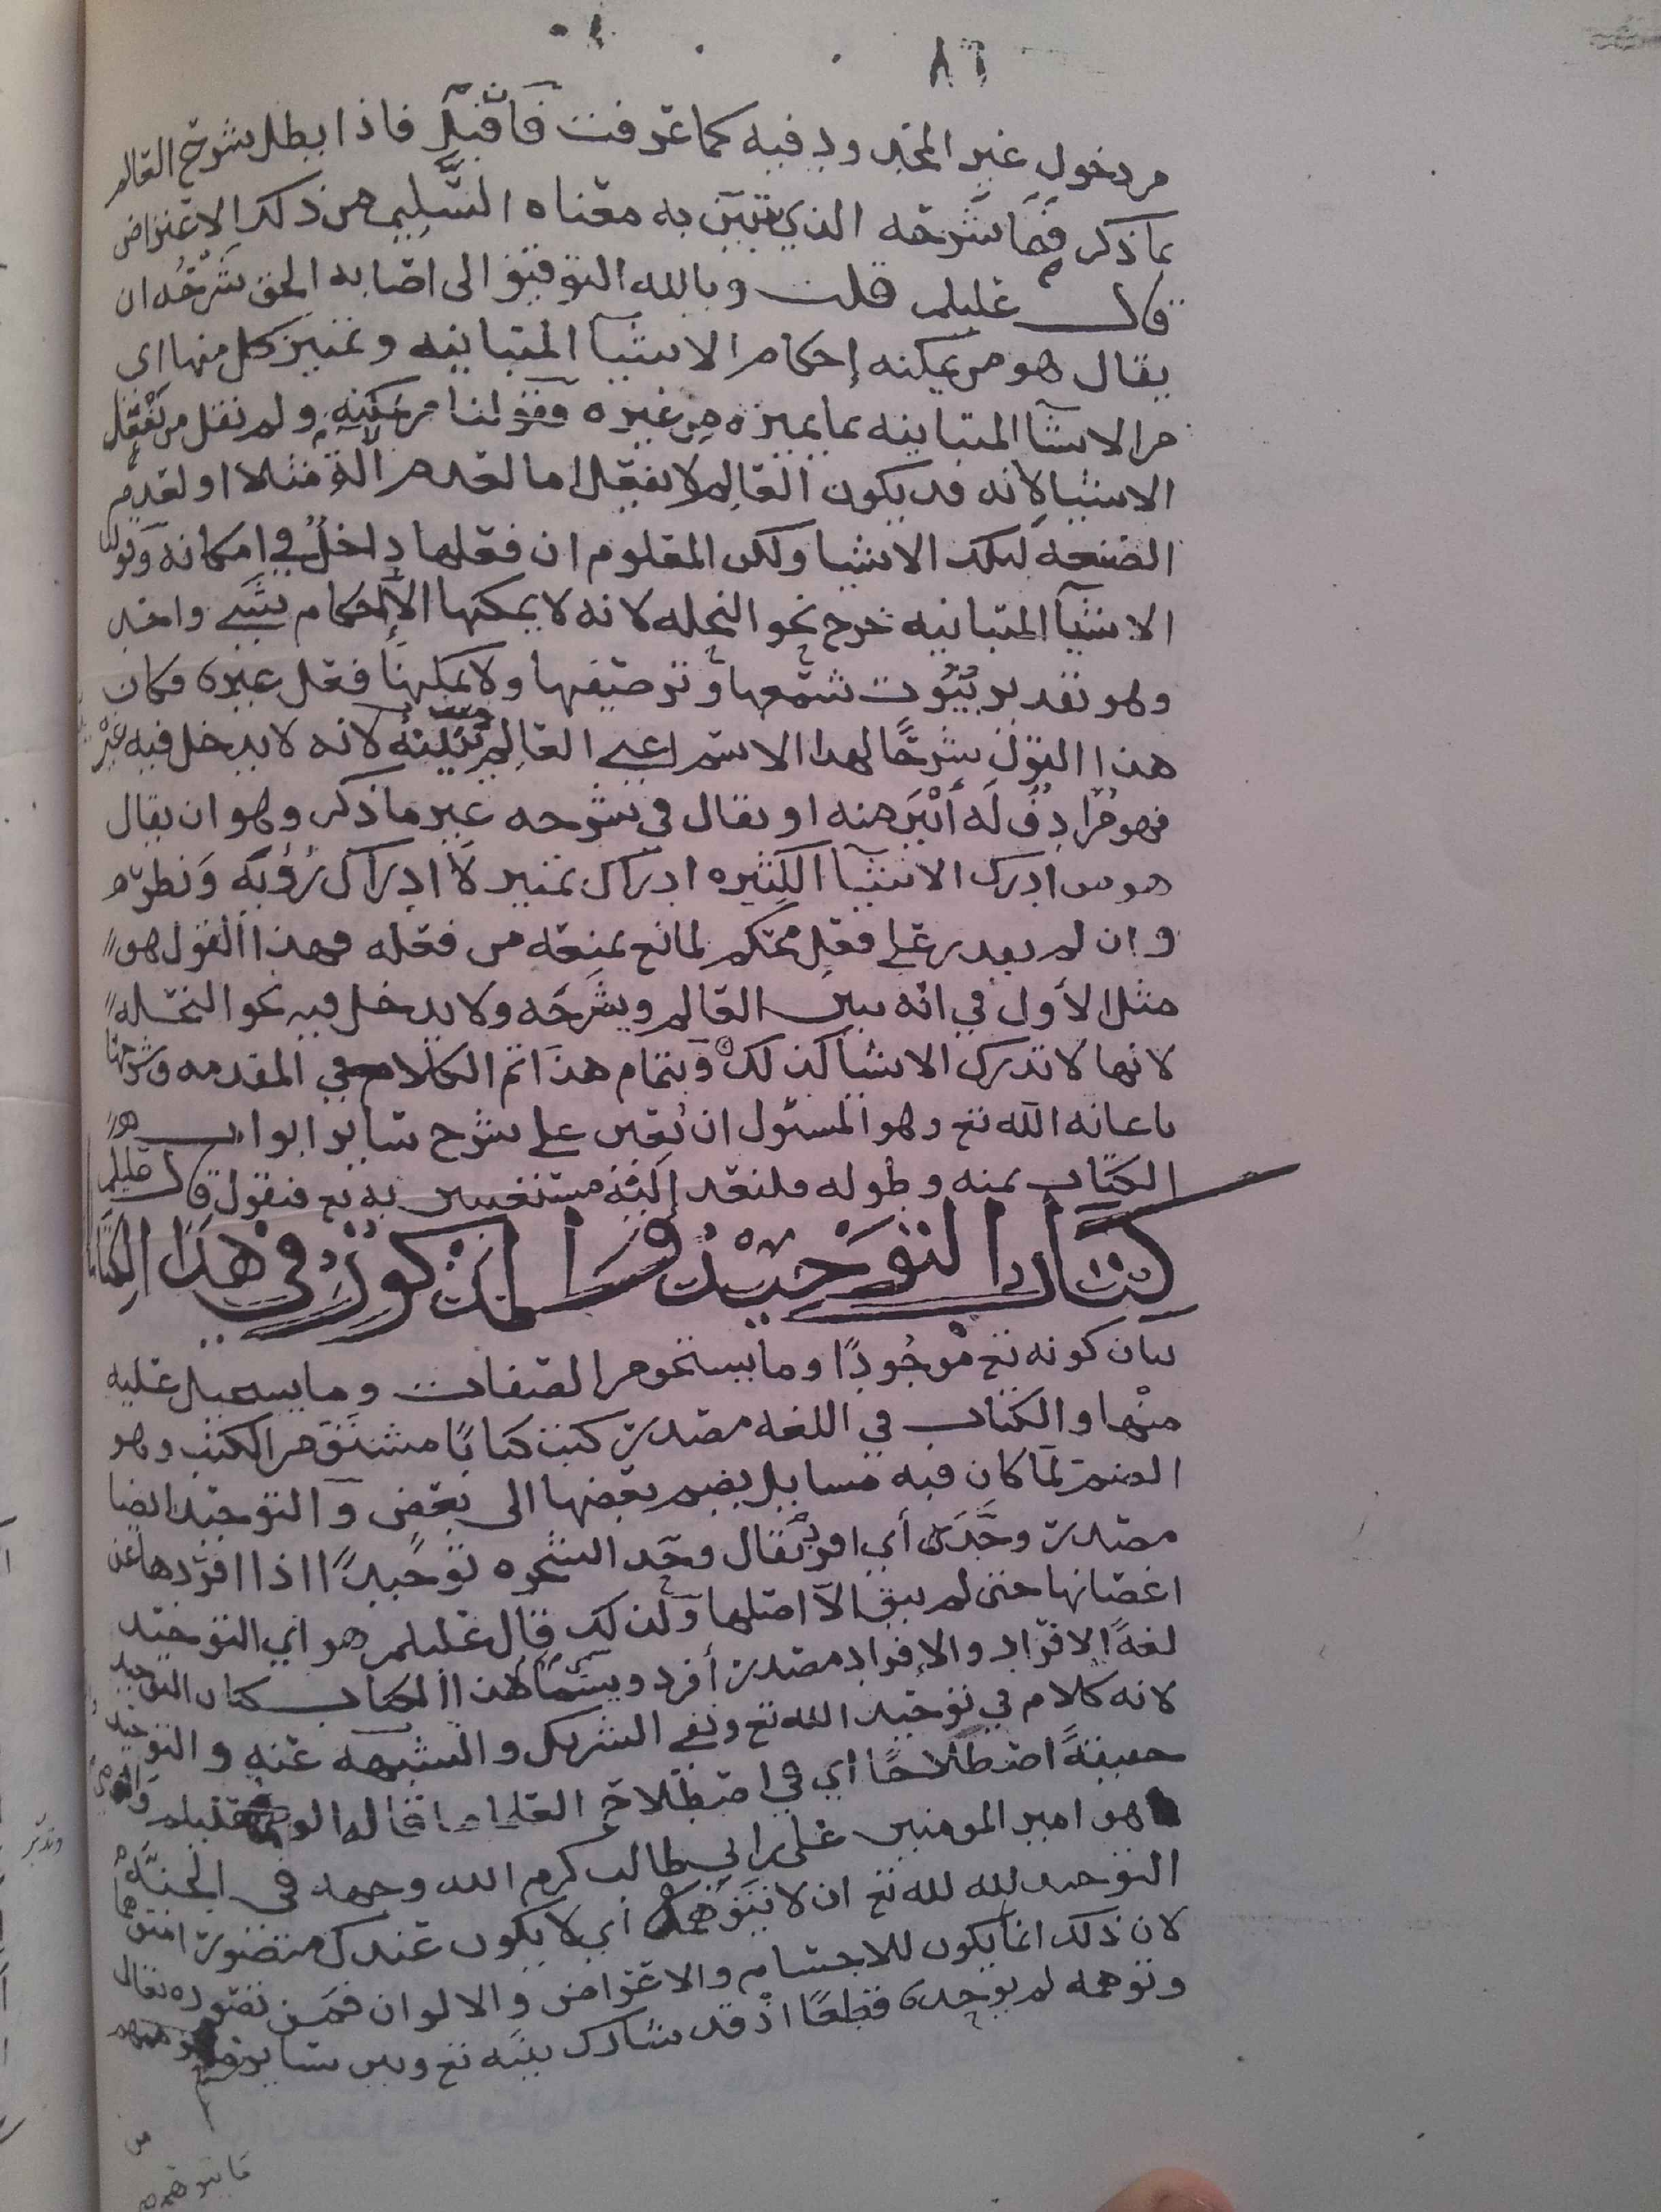 ٨٦
من دخول غير المحدود فيه كما عرفت فان قيل فاذا بطل شرح العالم
بما ذكر فما شرحه الذي يتبين به معناه السليم من ذلك الاعتراض
قال عليلم قلت وبالله التوفيق الى اصابه الحق شرحه ان
يقال هو من يمكنه إحكام الاشيا المتباينه وتمييز كل منها اي
من الاشيا المتباينه بما يميزه من غيره وقولنا من يمكنه ولم نقل من يفعل
الاشيا لأنه قد يكون العالم لا يفعل اما لعدم آلة مثلا او لعدم
الصنعه لتلك الاشيا ولكن المعلوم ان فعلها داخل في امكانه وقولنا
الاشيآ المتباينه خرج نحو النحله لانه لا يمكنها الا إحكام شي واحد
وهو تقدير بيوت شمعها وترصيفها ولا يمكنها فعل غيره فكان
هذا القول شرحًا لهذا الاسم اعني العالم لانه لا يدخل فيه غيره
فهو مرادف له أبين منه او يقال في شرحه غير ما ذكر وهو ان يقال
هو من ادرك الاشيا الكثيره ادراك تمييز لا ادراك رؤيه ونظر
وان لم يقدر على فعل محكم لمانع يمنعه من فعله فهذا القول هو
مثل الأول في انه يبين العالم ويشرحه ولا يدخل فيه نحو النحله
لانها لا تدرك الاشيا كذلك وبتمام هذا تم الكلام في المقدمه وشرحها
باعانه الله تع وهو المسئول ان يعين على شرح سائر ابواب هذا
الكتاب بمنه وطوله فلنعد إليه مستعينين به تع فنقول قال عليلم
كتاب التوحيد والمذكور في هذا الكتاب
بيان كونه تع موجودًا وما يستحق من الصفات وما يستحيل عليه
منها والكتاب في اللغه مصدر كتب كتابًا مشتق من الكتب وهو
الضم لما كان فيه مسايل يضم بعضها الى بعض والتوحيد ايضا
مصدر وحد أي افرد يقال وحد الشجره توحيدًا اذا افردها عن
اغصانها حتى لم يبق الا اصلها ولذلك قال عليلم هو اي التوحيد
لغةً الافراد والإفراد مصدر أفرد ويسما هذا الكتاب كتاب التوحيد
لانه كلام في توحيد الله تع ونفي الشريك والتشبيه عنه والتوحيد
حقيقةً اصطلاحًا اي في اصطلاح العلما ما قاله الوصي عليلم
هو امير المومنين علي بن ابي طالب كرم الله وجهه في الجنة
التوحيد لله تع ان لا تتوهمه أي لا يكون عندك متصورا متوهما
لان ذلك انما يكون للاجسام والاعراض والالوان فمن تصوره تعالى
وتوهمه لم يوحده قطعًا اذ قد شارك بينه تع وبين سائر